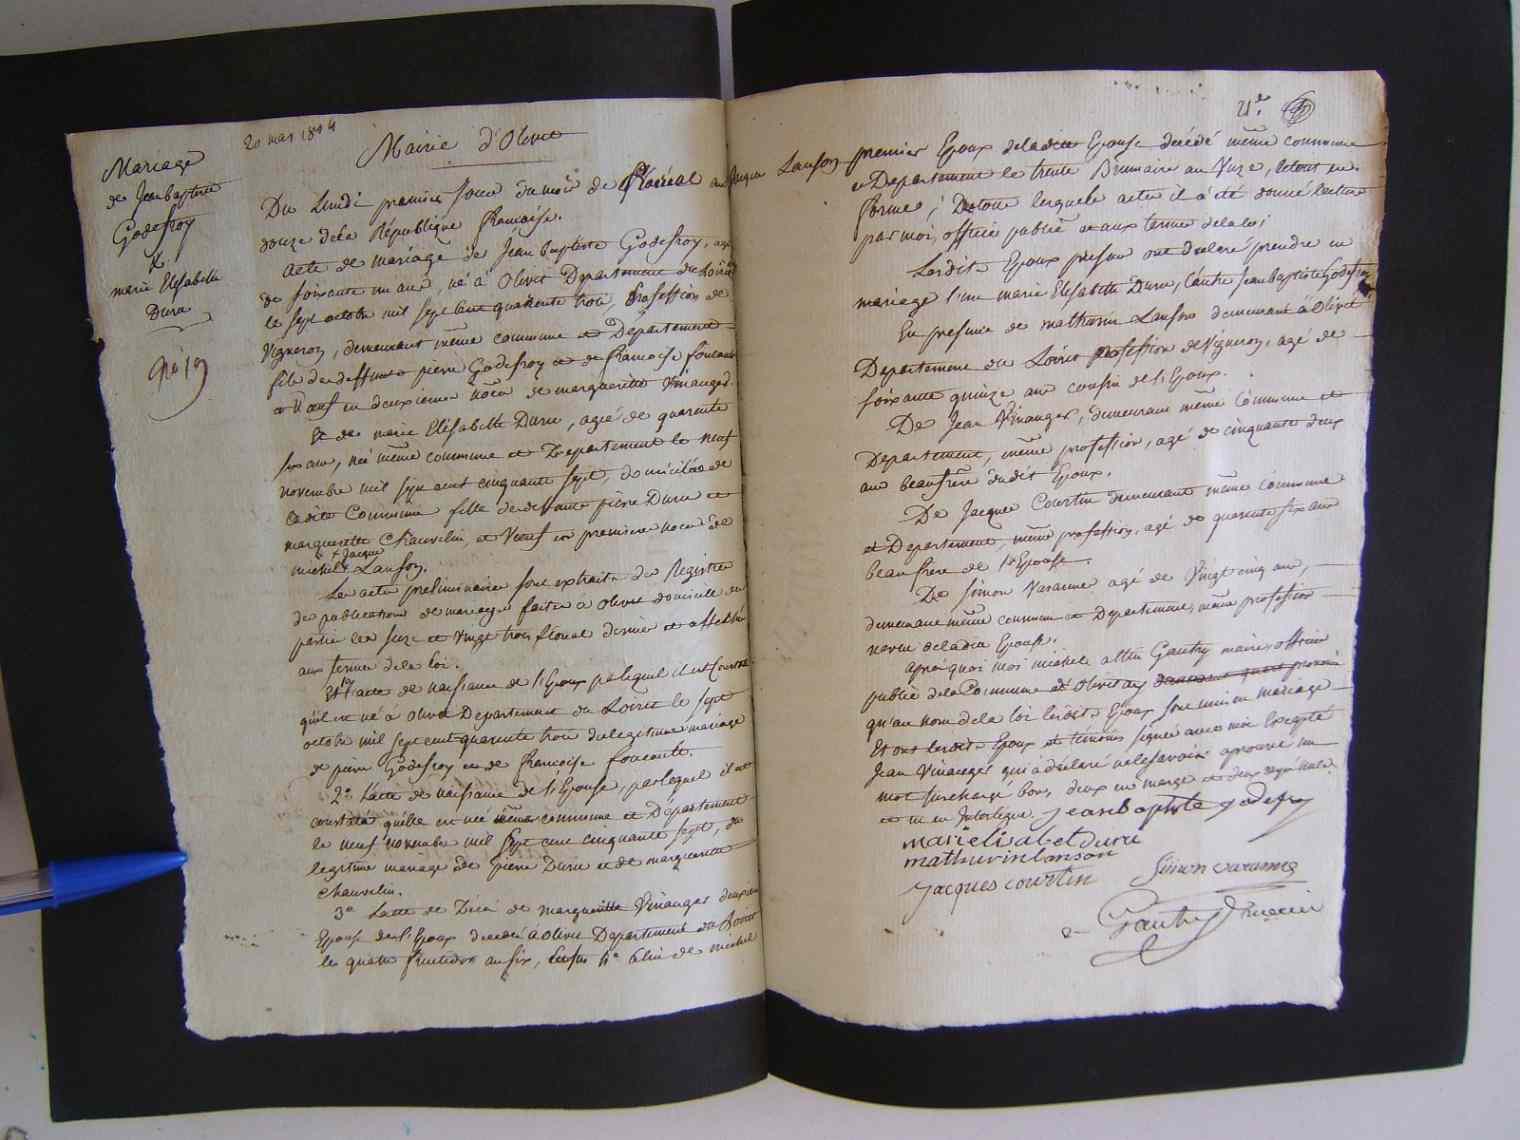 20 mai 1804
Mariage
de Jean Baptiste
Godefroy
&
marie Elisabette
Dura
No 19
Mairie d'Olivet
Du Lundi premier jour du mois de Prairial an
douze de la République francaise.
Acte de mariage de Jean Baptiste Godefroy, agé
de soixante un ans, né à Olivet Departement du Loiret
le sept octobre mil sept cent quarente trois, Profession de
Vigneron, demeurant même commune et Departement
fils de deffunts pierre Godefroy et de francoise foucault
et Veuf en deuxieme nôce de marguerite Vinauger.
Et de marie Elisabette Dura, agée de quarente
six ans, née même commune et Departement le neuf
novembre mil sept cent cinquante sept, domiciliée de
ladite Commune fille de deffunts pierre Dura et
marguerette Chauvelin, et Veuve en premiere noce de
michel + Jacque Lanson.
Les actes preliminaires sont extraits des Registres
de publications de mariages faites à Olivet domicile des
parties les seize et Vingt trois floreal dernier et affichés
aux termes de la loi.
1o l'acte de naissance de l'Epoux par lequel il est Constaté
qu'il est né à Olivet Departement du Loiret le sept
octobre mil sept cent quarente trois du legitime mariage
de pierre Godefroy et de francoise foucault.
2o L'acte de naissance de l'Epouse, par lequel il est
constaté qu'elle est née même commune et Département
le neuf novembre mil sept cent cinquante sept, du
legitime mariage de pierre Dura et de marguerette
Chauvelin.
3o L'acte de Décé de marguerette Vinauger deuxieme
Epouse de l'Epoux décédée à Olivet Departement du Loiret
le quatre fructidor an six, celui de michel
Lanson premier Epoux de ladite Epouse décédé même commune
et Departement le trente Brumaire an Onze, le tout en
formes; De tous lesquels actes il a été donné lecture
par moi, officier public et aux termes de la loi
Lesdits Epoux presens ont déclaré prendre en
mariage l'une marie Elisabette Dura, l'autre Jean Baptiste Godefroy
En presence de mathurin Lanson demeurant à Olivet
Departement du Loiret profession de Vigneron, agé de
soixante quinze ans cousin de l'Epoux.
De Jean Vinauger, demeurant même Commune et
Departement, même profession, agé de cinquante deux
ans beaufrere dudit Epoux.
De Jacque Courtin demeurant même Commune
et Departement, même profession, agé de quarente six ans
beaufrere de l'Epouse.
De Simon Varanne agé de Vingt cinq ans,
demeurant même commune et Departement, même profession
neveu de ladite Epouse.
Après quoi moi michel Gautry maire officier
public de la Commune d'Olivet ay prononcé
qu'au nom de la loi lesdits Epoux sont unis en mariage
Et ont lesdits Epoux et témoins signés avec moi Excepté
Jean Vinauger qui a déclaré ne le savoir aprouvé un
mot surchargé bon, deux en marge et deux rayé nuls
et un en Interligne. jean Baptiste godefroy
marielisabet dura
mathurin lanson
jacques courtin Simon varanne
Gautry maire